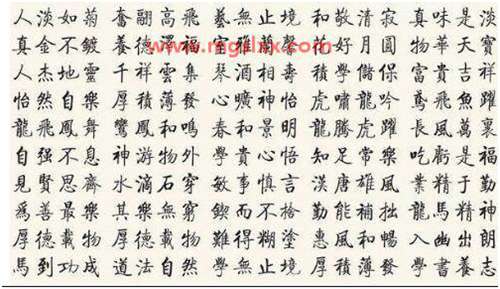 人淡如菊 奮翮高飛 藝無止境 和敬清寂 真味是淡
真金不鍍 養德 福 蘭馨 花好月圓 物華天寶
人杰地靈 千祥雲集 琴酒相壽 積學儲保 富貴吉祥
怡然自樂 厚積薄發 心曠神怡 虎嘯龍吟 鳶飛魚躍
龍飛鳳舞 鸞鳳和鳴 春和景明 龍騰虎躍 長風萬裏
自强不息 神游物外 學貴心悟 知足常樂 吃虧是福
見賢思齊 水滴石穿 敏事慎言 漢唐雄風 業精于勤
爲善最樂 其樂無窮 鍥而不捨 勤能補拙 龍馬精神
厚德載物 厚德載物 難得糊塗 惠風和暢 入幽出朗
馬到功成 道法自然 學無止境 厚積薄發 學書養志